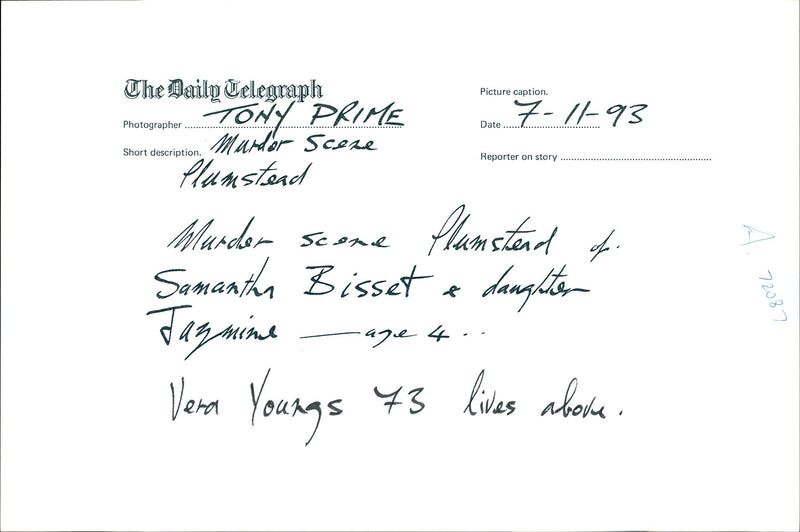 The Daily Telegraph
Picture caption.
Photographer TONY PRIME
Date 7-11-93
Short description. Murder Scene
Plumstead
Reporter on story
Murder scene Plumstead of.
Samantha Bisset & daughter
Jazmine — age 4 ..
Vera Youngs 73 lives above.
A.
72087